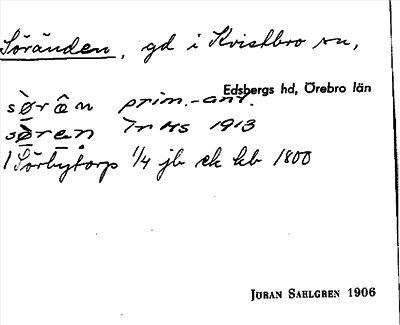 Söränden, gd i Kvistbro sn,
Edsbergs hd, Örebro län
sø̀rân prim.-ant.
sø̀ren
1913
1 Sörbytorp 1/4 jb sk kb 1800
JÖRAN SAHLGREN 1906